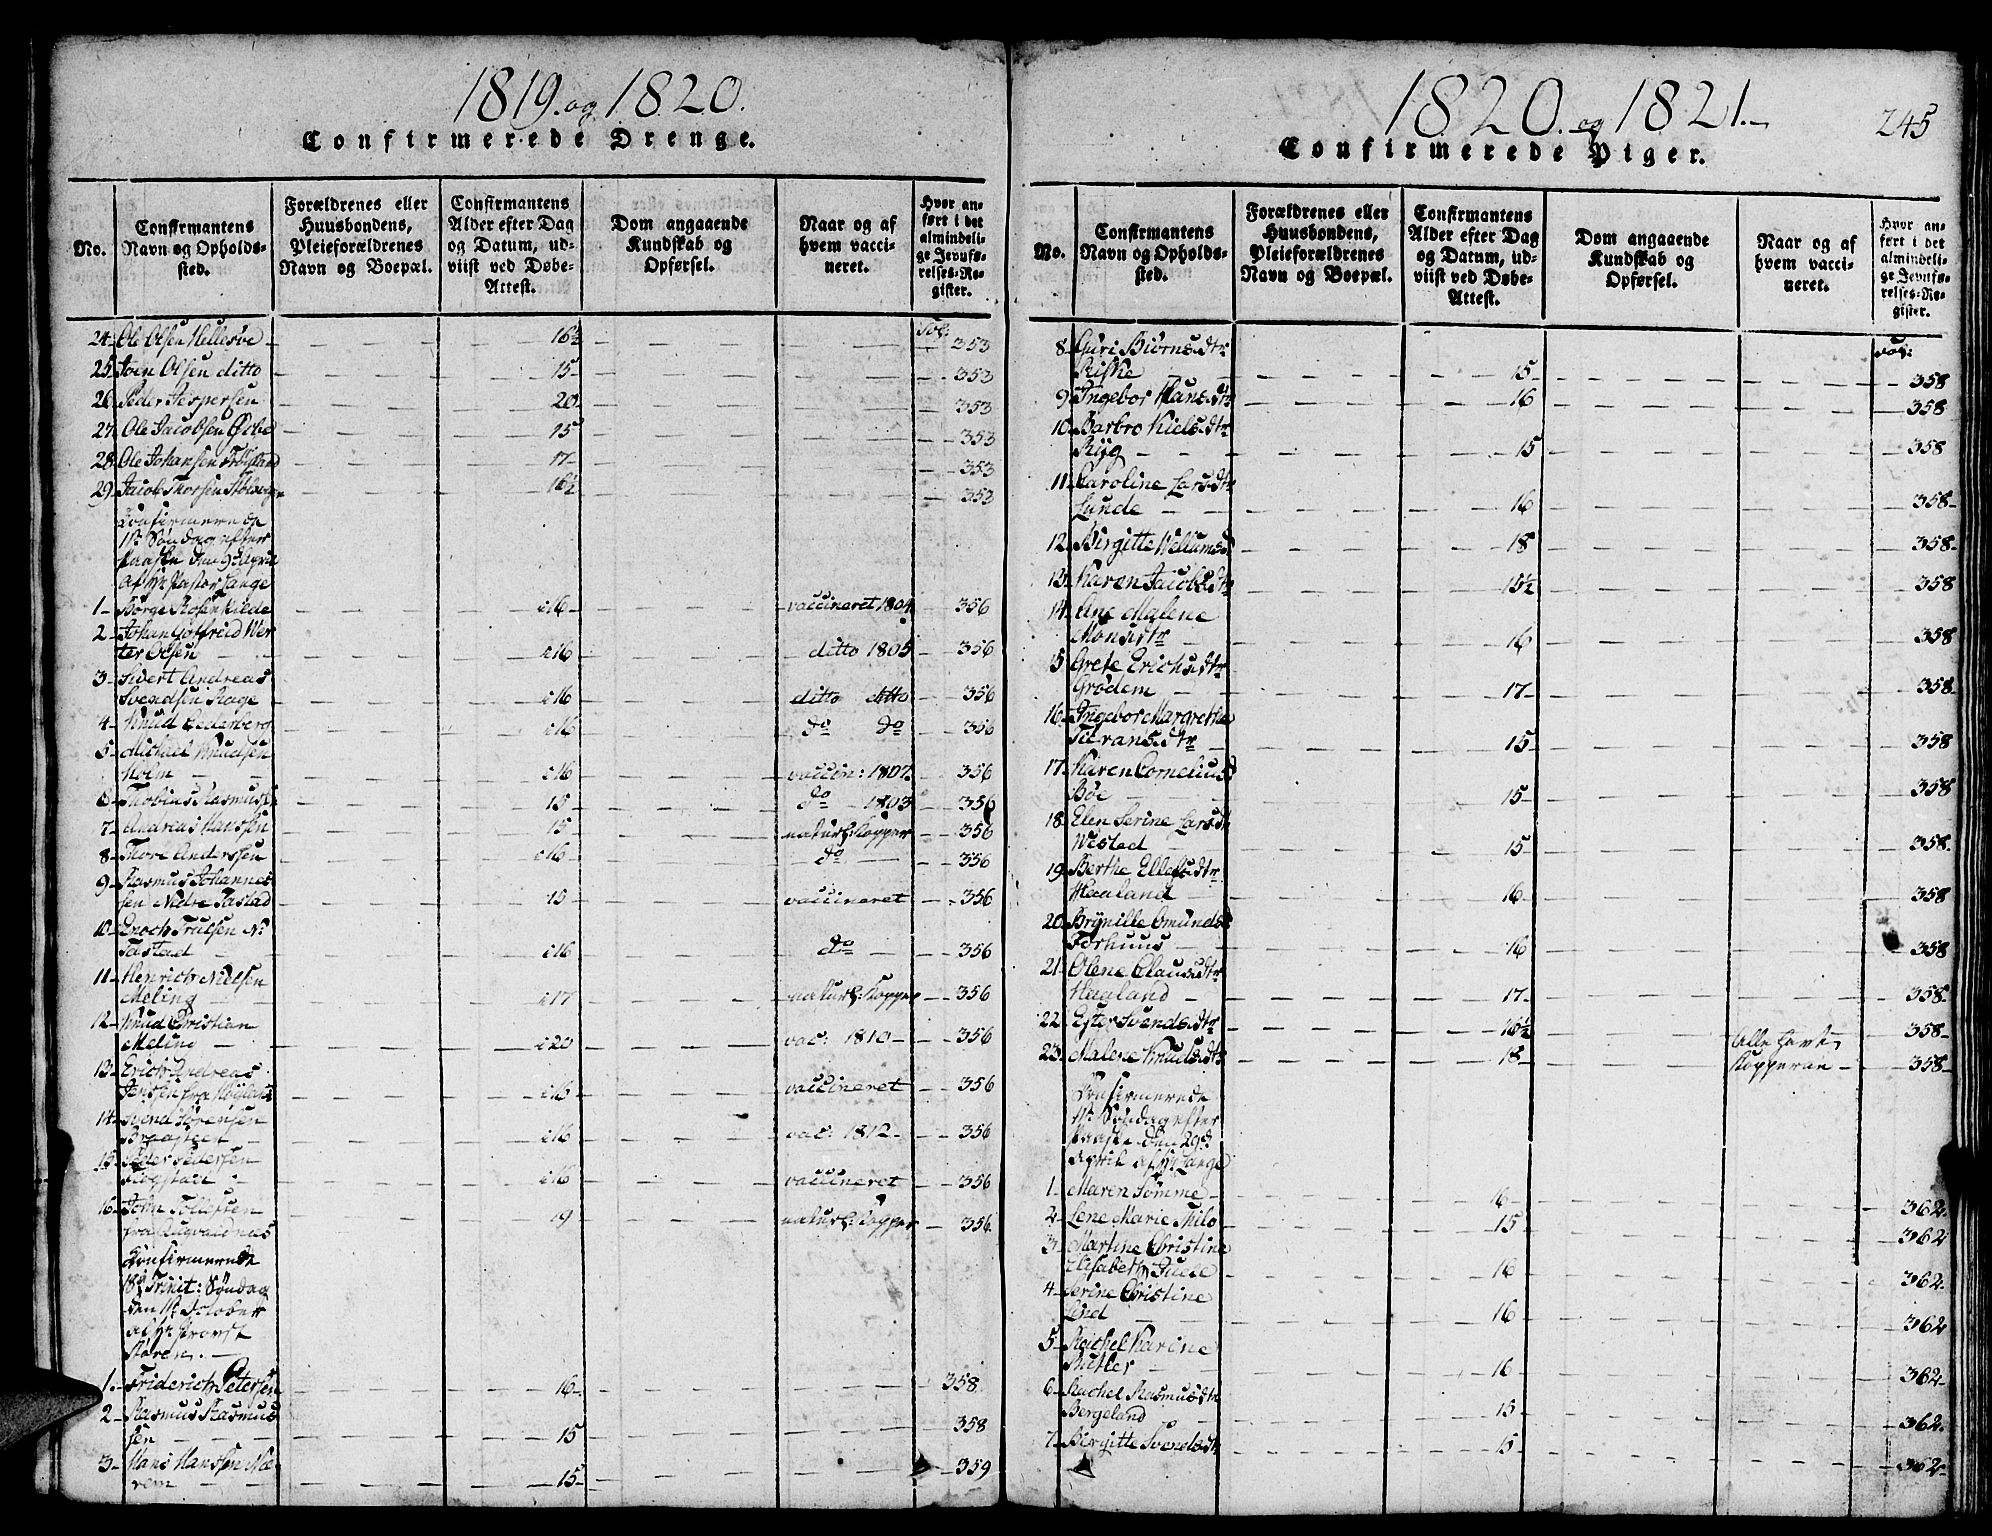 1819. og 1820.
Confirmerede Drenge.
No.
Confirmantens
Navn og Opholds-
sted.
Forældrenes eller
Huusbondens,
Pleieforældrenes
Navn og Boepæl.
Confirmantens
Alder efter Dag
og Datum, ud-
viist ved Døbe-
Attest.
Dom angaaende
Kundskab og
Opførsel.
Naar og af
hvem vacci-
neret.
Hvor an-
ført i det
almindeli-
ge Jevnfø-
relses-Re-
gister.
Fol:
24 Ole Olsen Hellesøe 16½ 353
25 Joen Olsen ditto 15 353
26 Peder Jespersen 20 353
27 Ole Jacobsen 15 353
28 Ole Johansen 17 353
29 Jacob Thorsen 16½ 353
Confirmerede
1te Søndag efter
Paaske den 9de April
af Hr Pastor Lange
1 Børge Rosenkilde 16 vaccineret 1804 356
2 Johan Gotfried Wer
ter Olsen 16 ditto 1805 356
3 Sivert Andreas
Svendsen Rage 16 ditto ditto 356
4 Knud Cederberg 16 do do 356
5 Michael Knudsen
Holm 16 vaccin: 1807 356
6 Thobias Rasmussen 15 do 1803 356
7 Andreas Hanssen 15 naturl: Kopper 356
8 Thore Anderssen 16 do 356
9 Rasmus Johannes
sen Nedre Tastad 15 vaccineret 356
10 Enoch Truelsen N:
Tastad 16 do 356
11 Henrich Nielsen
Meling 17 naturl: Kopper 356
12 Knud Christian
Meling 20 vac: 1810 356
13 Erich Andreas
Jenssen fra 16 vaccineret 356
14 Svend Sørensen
Braasteen 16 vac: 1812 356
15 Peder Pedersen
16 vaccineret 356
16 John Tollefsen
fra 19 naturl: Kopper 356
Confirmerede
18de Trinit: Søndag
den 1te October
af Hr Provst
Støren.
1. Friderich Petersen 16 358.
2 Rasmus Rasmus
sen 15 358
3 Hans Hanssen Næ
rem 15 359
1820. og 1821.
245
Confirmerede Piger.
No.
Confirmantens
Navn og Opholds-
sted.
Forældrenes eller
Huusbondens,
Pleieforældrenes
Navn og Boepæl.
Confirmantens
Alder efter Dag
og Datum, ud-
viist ved Døbe-
Attest.
Dom angaaende
Kundskab og
Opførsel.
Naar og af
hvem vacci-
neret.
Hvor an-
ført i det
almindeli-
ge Jevnfø-
relses-Re-
gister.
Fol:
8 Guri Biørnsdtr
Riske 15 358
9 Ingebor Hansdtr 16 358
10 Barbro Nielsdtr
Ryg 15 358
11 Caroline Larsdtr
Lunde 16 358
12 Birgitte Wellumsd 18 358
13 Karen Jacobsdtr 15½ 358
14 Ane Malene
Monsdtr 16 358
15 Grete Erichsdtr
Grødem 17 358
16 Ingebor Margrethe
dtr 15 358
17 Karen Cornelius
Bøe 15 358
18 Elen Serine Larsdtr
Westad 15 358
19 Berthe Ellefsdtr
Haaland 16 358
20 Brynille Omundsd
Forhuus 16 358
21 Olene Clausdtr
Hagland 17 358
22 Ester Svendsdtr 16½ Alle havt 358
23 Malene Knudsdtr 18 Kopperne 358
Confirmerede
1te Søndag efter
Paaske den 29de
April af Hr Lange
1 Maren Sømme 16 362
2 Lene Marie Milo 15 362
3 Martine Christine
Elisabeth Juele 16 362
4 Serine Christine
Lind 16 362
5 Rachel Karine
Butler 16 362
6 Rachel Rasmusdtr
Bergeland 15 362
7 Birgitte Svendsdtr 15 362